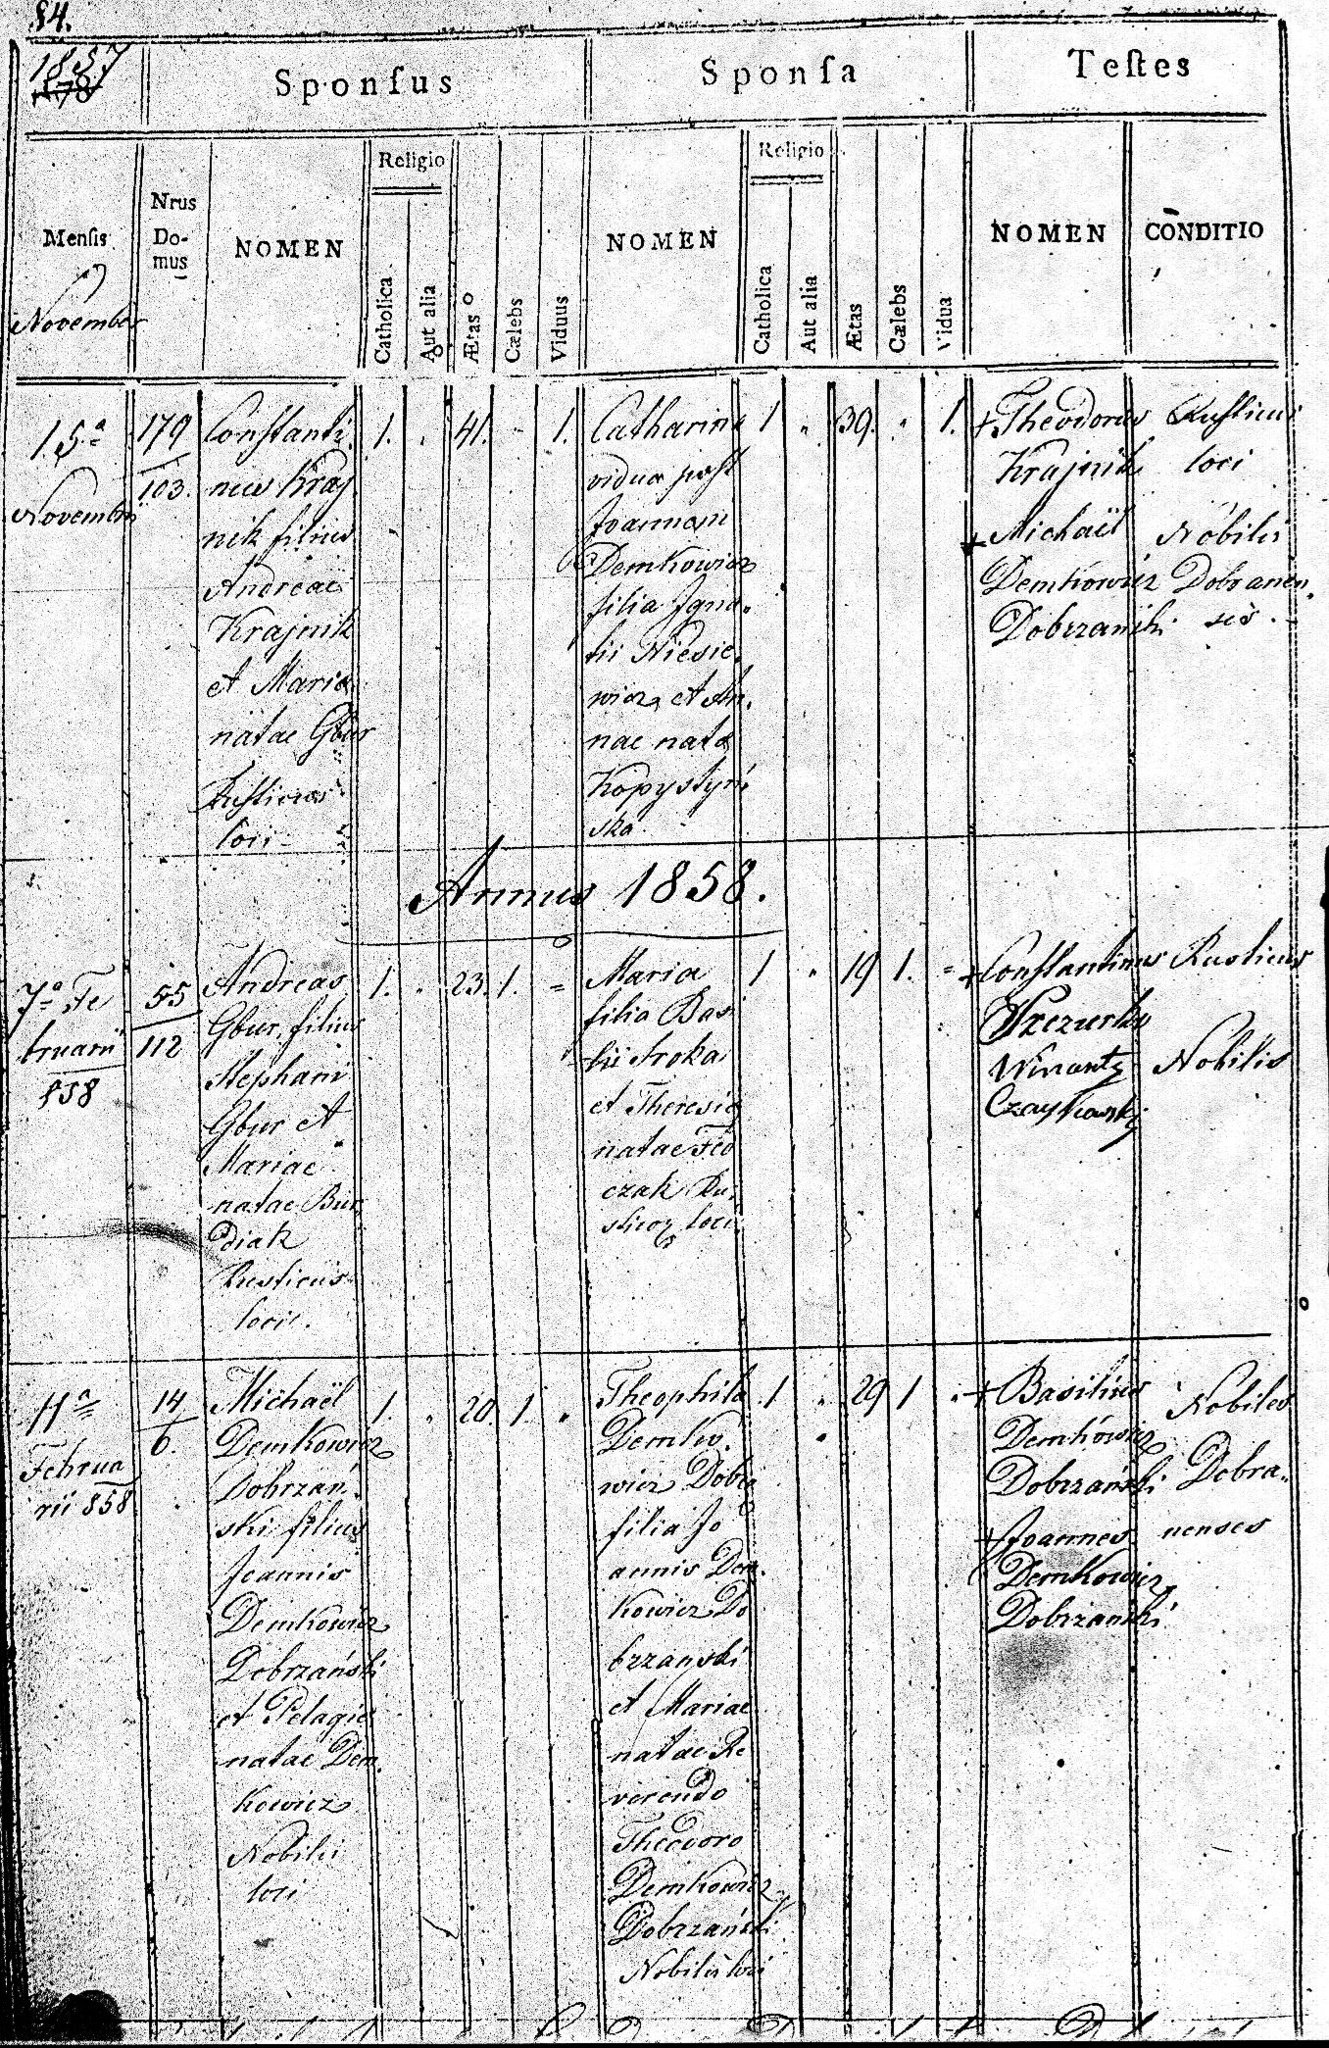 84.
1857
178
Sponsus
Sponsa
Testes
Mensis
November
Nrus
Do-
mus
NOMEN
Religio
Catholica
Aut alia
Ætas
Cælebs
Viduus
NOMEN
Religio
Catholica
Aut alia
Ætas
Cælebs
Vidua
NOMEN
CONDITIO
15a
Novembris
179
103.
Constanti
nus Kraj
nik filius
Andreae
Krajnik
et Mariae
natae Gbur
Rusticus
loci
1. 41. 1.
Catharina
vidua post
Joannem
Demkowicz
filia Igna-
tii Niesie-
wicz et An-
nae nata
Kopystyń
ska
1 39. 1.
+ Theodorus
Krajnik
+ Michaël
Demkowicz
Dobrzański
Rusticus
loci
Nobilis
Dobranen-
sis.
Annus 1858.
7a Fe
bruarii
858
55
112
Andreas
Gbur filius
Stephani
Gbur et
Mariae
natae Bur
diak
Rusticus
loci.
1. 23. 1.
Maria
filia Basi
lii Sroka
et Theresia
natae Fed
czak Ru-
sticoz loci
1 19 1.
+ Constantinus
Winanty
Czaykowski
Rusticus
Nobilis
11a
Februa
rii 858
14
6.
Michaël
Demkowicz
Dobrzań-
ski filius
Joannis
Demkowicz
Dobrzański
et Pelagie
natae Dem-
kowicz
Nobilis
loci
1. 20. 1.
Theophila
Demko-
wicz Dobrz
filia Jo
annis Dem-
kowicz Do
brzanski
et Mariae
natae Re
verendo
Theodoro
Demkowicz
Dobrzański
Nobilis loci
1 29 1
+ Basilius
Demkowicz
Dobrzański
+ Joannes
Demkowicz
Dobrzański
Nobiles
Dobra-
nenses